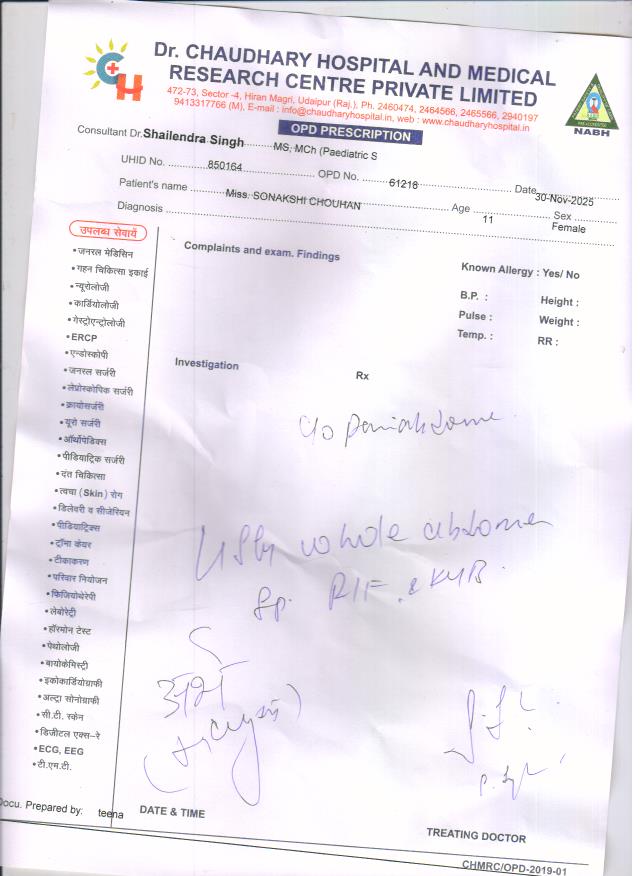 Dr. CHAUDHARY HOSPITAL AND MEDICAL
RESEARCH CENTRE PRIVATE LIMITED
472-73, Sector -4, Hiran Magri, Udaipur (Raj.), Ph. 2460474, 2464566, 2465566, 2940197
9413317766 (M), E-mail : info@chaudharyhospital.in, web : www.chaudharyhospital.in
NABH
OPD PRESCRIPTION
Consultant Dr. Shailendra Singh MS, MCh (Paediatric S
UHID No. 850164 OPD No. 61218 Date 30-Nov-2025
Patient's name Miss. SONAKSHI CHOUHAN Age 11 Sex Female
Diagnosis
उपलब्ध सेवायें
• जनरल मेडिसिन
• गहन चिकित्सा इकाई
• न्यूरोलोजी
• कार्डियोलोजी
• गेस्ट्रोएन्ट्रोलोजी
• ERCP
• एन्डोस्कोपी
• जनरल सर्जरी
• लेप्रोस्कोपिक सर्जरी
• क्रायोसर्जरी
• यूरो सर्जरी
• ऑर्थोपेडिक्स
• पीडियाट्रिक सर्जरी
• दंत चिकित्सा
• त्वचा (Skin) रोग
• डिलेवरी व सीजेरियन
• पीडियाट्रिक्स
• ट्रॉमा केयर
• टीकाकरण
• परिवार नियोजन
• फिजियोथेरेपी
• लेबोरेट्री
• हॉरमोन टेस्ट
• पेथोलोजी
• बायोकेमिस्ट्री
• इकोकार्डियोग्राफी
• अल्ट्रा सोनोग्राफी
• सी.टी. स्केन
• डिजीटल एक्स-रे
• ECG, EEG
• टी.एम.टी.
Complaints and exam. Findings
Known Allergy : Yes/ No
B.P. : Height :
Pulse : Weight :
Temp. : RR :
Investigation
Rx
c/o
USG whole abdomen
Sp. RIF & KUB
Docu. Prepared by: teena
DATE & TIME
TREATING DOCTOR
CHMRC/OPD-2019-01